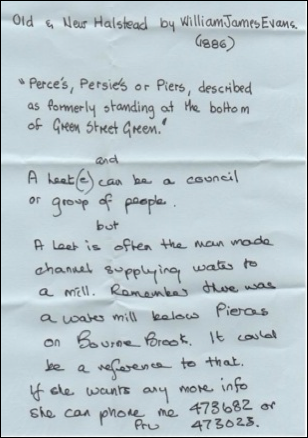 Old & New Halstead by William James Evans.
(1886)
"Perce's, Persie's or Piers, described
as formerly standing at the bottom
of Green Street Green."
and
A Leet(e) can be a council
or group of people.
but
A leet is often the man made
channel supplying water to
a mill. Remember there was
a water mill below Pierces
on Bourne Brook. It could
be a reference to that.
If she wants any more info
she can phone me 473682 or
473023.